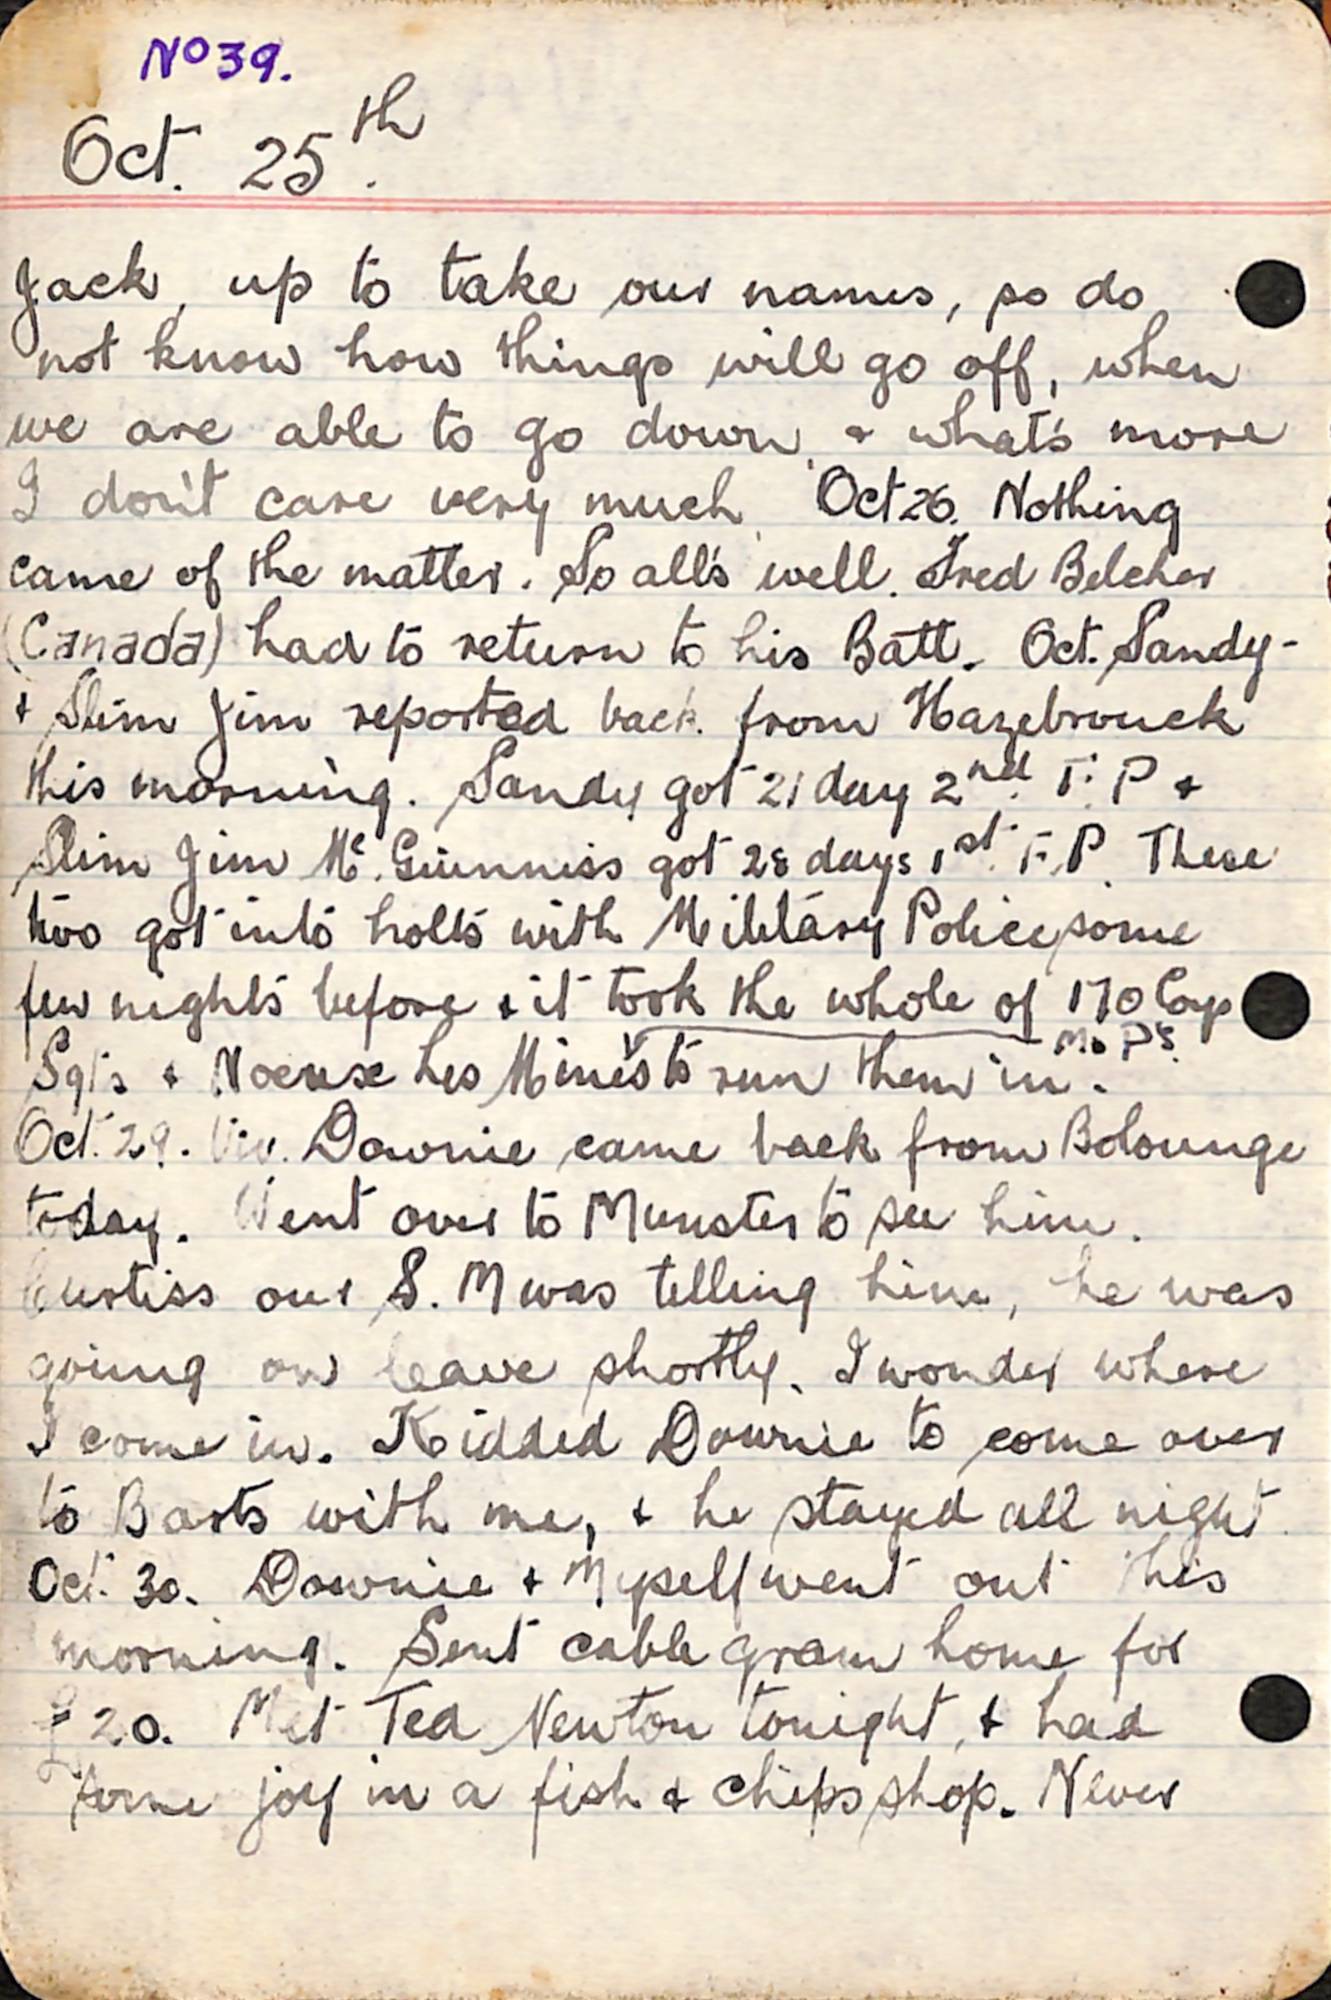 No 39.
Oct. 25th.
Jack, up to take our names, so do
not know how things will go off, when
we are able to go down, & what's more
I don't care very much. Oct 26. Nothing
came of the matter. So all's well. Fred Belcher
(Canada) had to return to his Batt. Oct. Sandy-
& Slim Jim reported back from Hazebrouck
this morning. Sandy got 21 day 2nd. F. P &
Slim Jim Mc. Guinniss got 28 days 1st. F.P. These
two got into holts with Military Police some
few nights before & it took the whole of 170 Coy
M. P's.
Sgts & to run them in.
Oct. 29. Viv. Downie came back from Bolounge
today. Went over to Munster to see him.
Curtiss our S. M was telling him, he was
going on leave shortly. I wonder where
I come in. Kidded Downie to come over
to Barts with me, & he stayed all night
Oct. 30. Downie & Myself went out this
morning. Sent cable gram home for
£20. Met Ted Newton tonight, & had
some joy in a fish & chips shop. Never